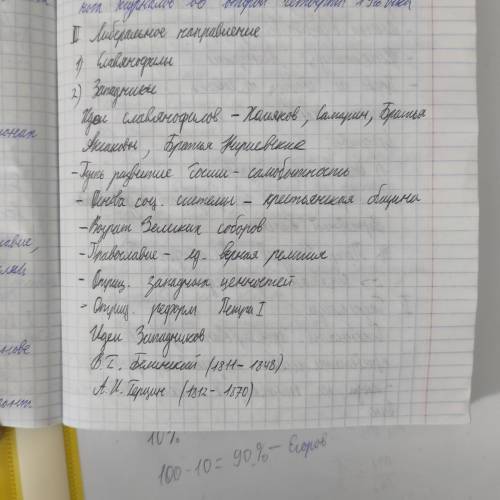 ных журналов во второй четверти 19го века
II Либеральное направление
1) Славянофилы
2) Западники
Идеи славянофилов - Хомяков, Самарин, Братья
Аксаковы, Братья Киреевские
- Путь развитие России - самобытность
- Основа соц. системы - крестьянская община
- Возрат Земских соборов
- Православие - ед. верная религия
- Отриц. западных ценностей
- Отриц. реформ Петра I
Идеи Западников
В.Г. Белинский (1811-1848)
А.И. Герцин (1812-1870)
10%
100-10=90%- Егоров